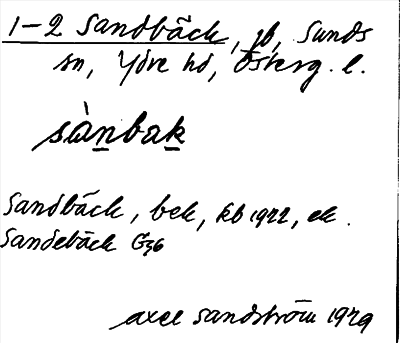 1-2 Sandbäck, jb, Sunds
sn, Ydre hd, Österg. l.
sànbak
Sandbäck, bek, kb 1922, ek.
Sandebäck G36
Axel Sandström 1929